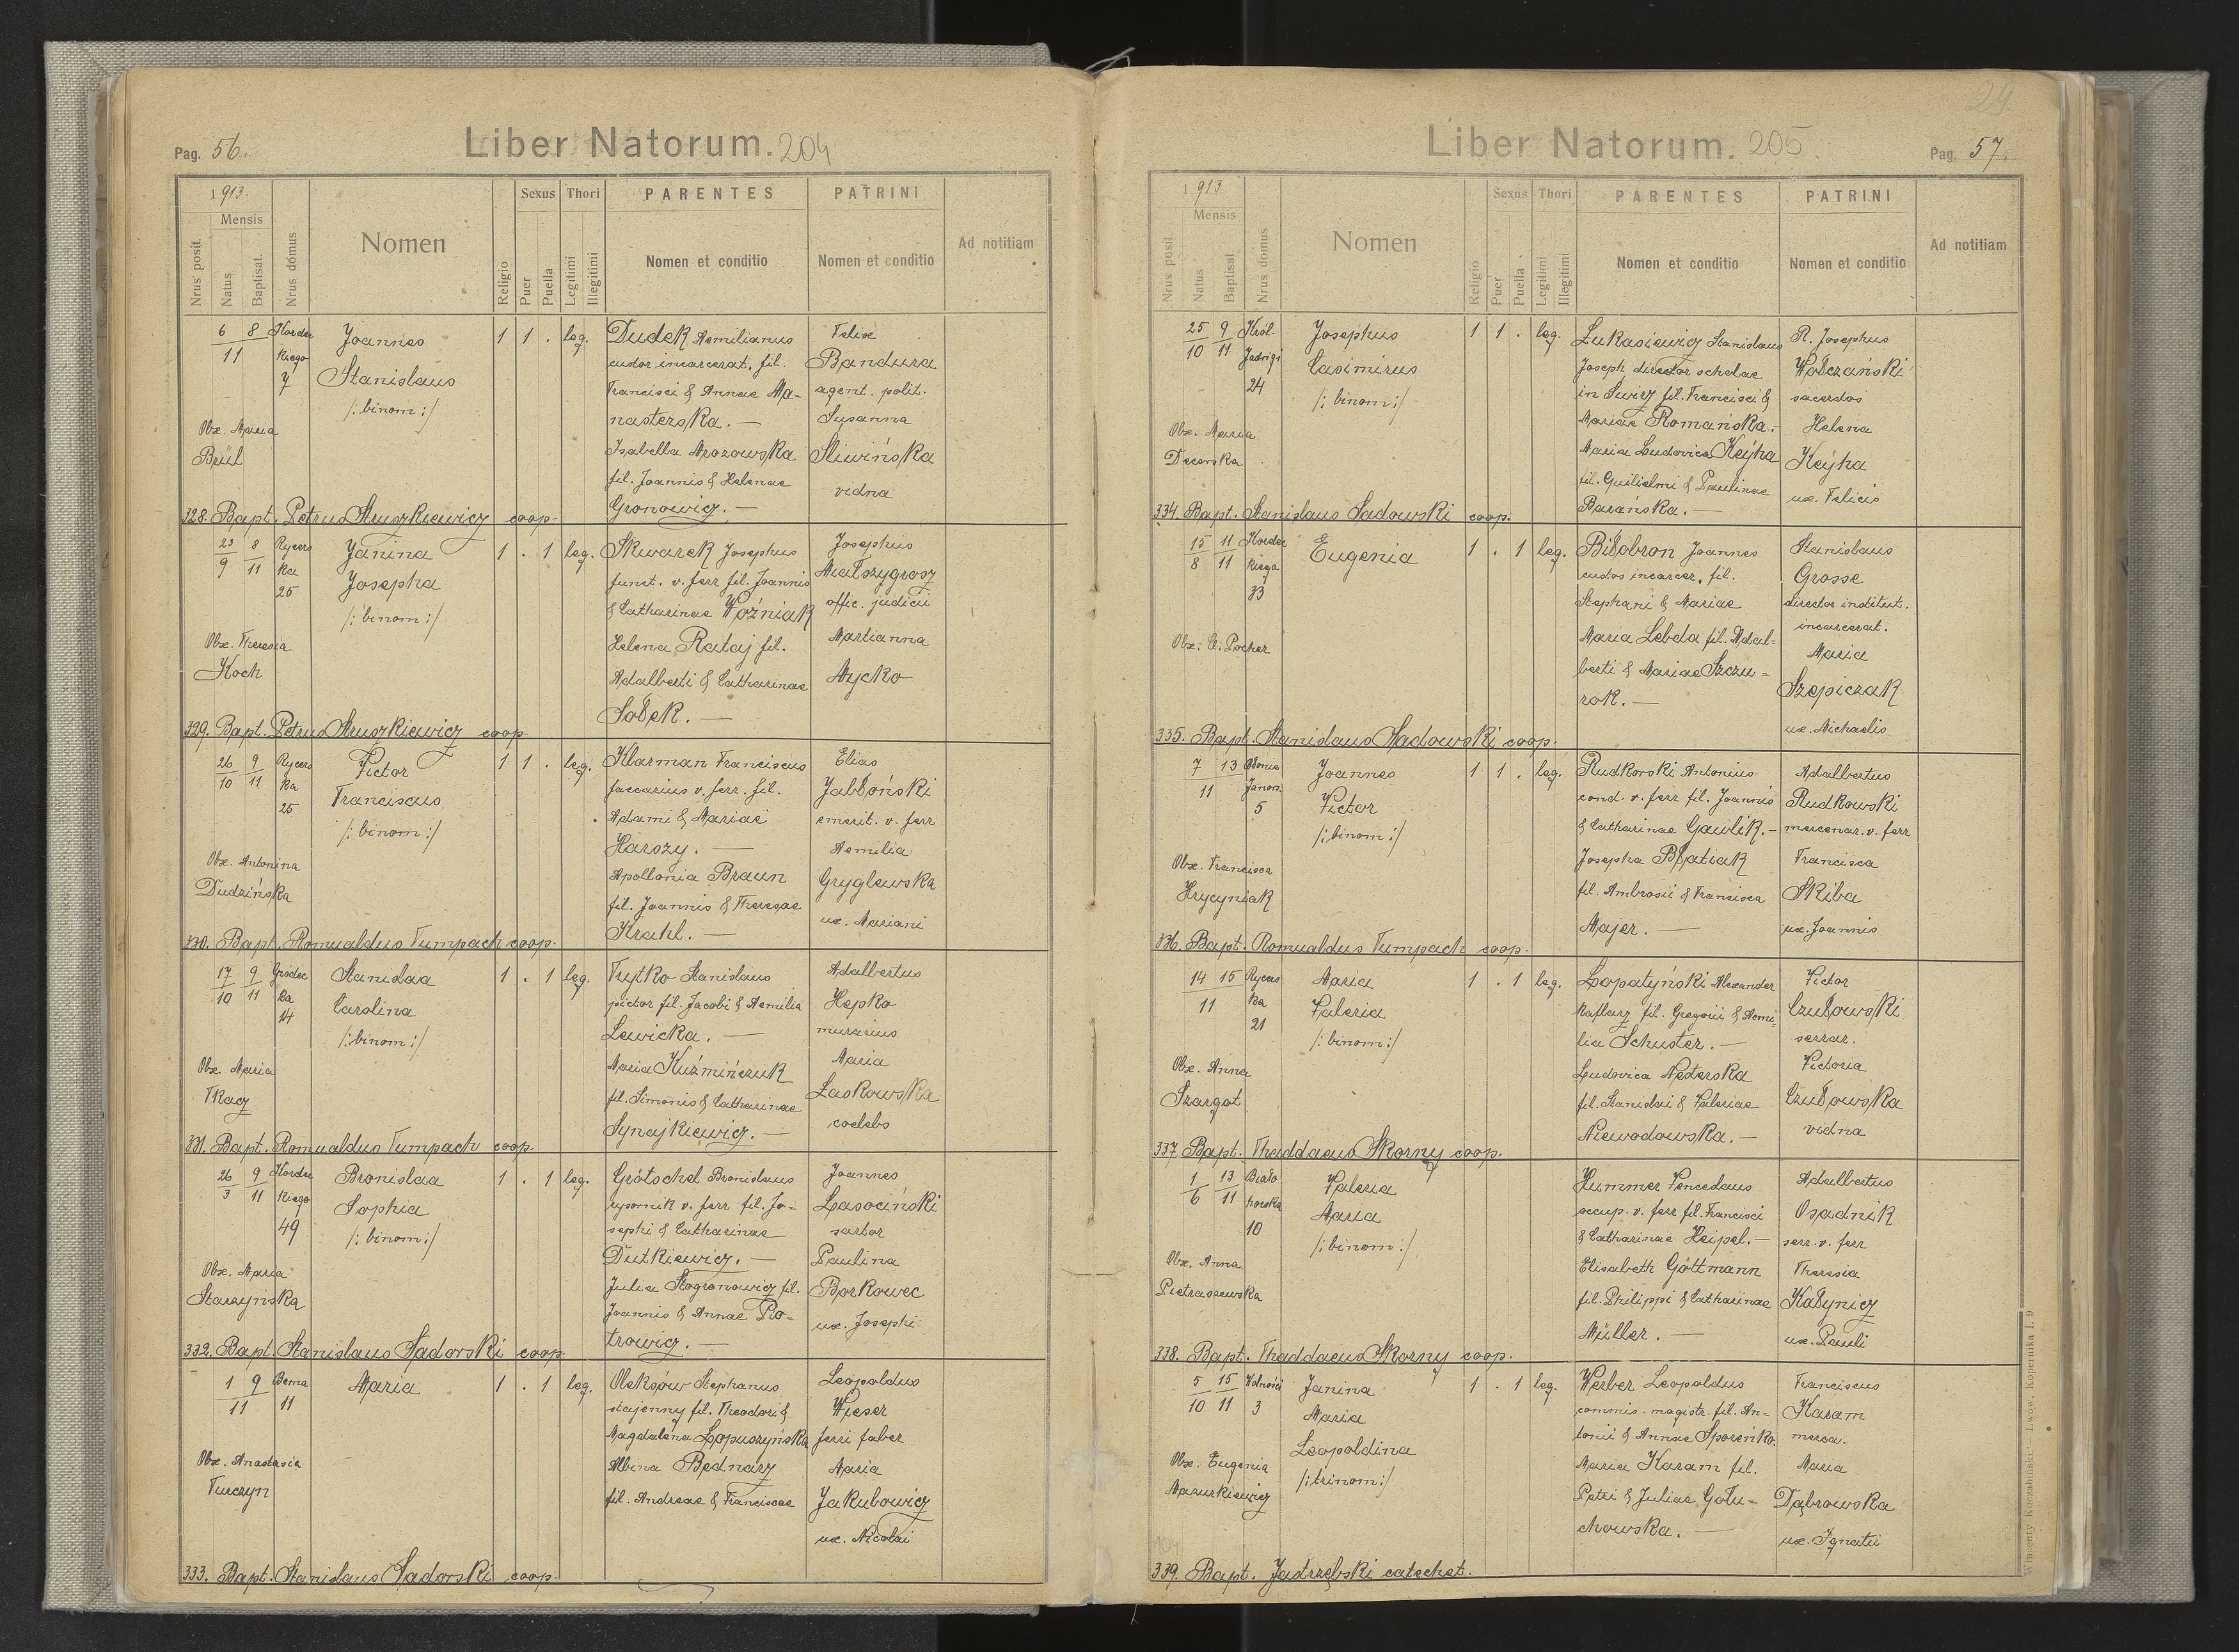 Pag. 56.
Liber Natorum. 204
1913.
Mensis
Nrus posit.
Natus
Baptisat.
Nrus domus
Nomen
Religio
Sexus
Puer
Puella
Thori
Legitimi
Illegitimi
PARENTES
Nomen et conditio
PATRINI
Nomen et conditio
Ad notitiam
6 8 Kordec
11 kiego
7
Joannes
Stanislaus
/: binom :/
1 1 . leg.
Obx. Maria
Brül
Dudek Aemilianus
custos incarcerat. fil.
Francisci & Annae Ma-
nasterska. —
Isabella Mrozowska
fil. Joannis & Helenae
Gronowicz. —
Felix
Bandura
agent. polit.
Susanna
Śliwińska
vidna
328. Bapt. Petrus Struszkiewicz coop.
23 8 Rycers
9 11 ka
25
Janina
Josepha
/: binom :/
1 . 1 leg.
Obx. Theresia
Koch
Skwarek Josephus
funct. v. ferr fil. Joannis
& Catharinae Woźniak
Helena Rataj fil.
Adalberti & Catharinae
Sobek. —
Josephus
Małszygrosz
offic. judicii
Martianna
Mycko
329. Bapt. Petrus Struszkiewicz coop.
26 9 Rycers
10 11 ka
25
Victor
Franciscus
/: binom :/
1 1 . leg.
Obx. Antonina
Dudzińska
Klarman Franciscus
faccarius v. ferr. fil.
Adami & Mariae
Harozy. —
Apollonia Braun
fil. Joannis & Theresae
Krahl. —
Elias
Jabłoński
emerit. v. ferr
Aemilia
Gryglewska
ux. Mariani
330. Bapt. Romualdus Tumpach coop.
17 9 Gródec
10 11 ka
14
Stanislaa
Carolina
/: binom :/
1 . 1 leg.
Obx. Maria
Tkacz
Trytko Stanislaus
pictor fil. Jacobi & Aemilia
Lewicka. —
Maria Kuźmińczuk
fil. Simonis & Catharinae
Synajkiewicz. —
Adalbertus
Hepko
murarius
Maria
Laskowska
coelebs
331. Bapt. Romualdus Tumpach coop.
26 9 Kordec
3 11 kiego
49
Bronislaa
Sophia
/: binom :/
1 . 1 leg.
Obx. Maria
Starzyńska
Grötschel Bronislaus
rysownik v. ferr fil. Jo-
sephi & Catharinae
Dutkiewicz. —
Julia Stogronowicz fil.
Joannis & Annae Pio-
trowicz. —
Joannes
Lasociński
sartor
Paulina
Borkowec
ux. Josephi
332. Bapt. Stanislaus Sadowski coop.
1 9 Bema
11 11
Maria
1 . 1 leg.
Obx. Anastasia
Turczyn
Oleksów Stephanus
stajenny fil. Theodori &
Magdalena Lopuszyńska
Albina Bednarz
fil. Andreae & Franciscae
Leopoldus
Wieser
ferri faber
Maria
Jakubowicz
ux. Nicolai
333. Bapt. Stanislaus Sadowski coop.
24
Liber Natorum. 205.
Pag. 57.
1913
Mensis
Nrus posit
Natus
Baptisat.
Nrus domus
Nomen
Religio
Sexus
Puer
Puella
Thori
Legitimi
Illegitimi
PARENTES
Nomen et conditio
PATRINI
Nomen et conditio
Ad notitiam
25 9 Król.
10 11 Jadwigi
24
Josephus
Casimirus
/: binom :/
1 1 . leg.
Obx. Maria
Łukasiewicz Stanislaus
Joseph director scholae
in Swirz fil. Francisci &
Mariae Romańska. —
Maria Ludovica Keÿha
fil. Guilielmi & Paulinae
Barańska. —
R. Josephus
Wołczański
sacerdos
Helena
Keÿha
ux. Felicis
334. Bapt. Stanislaus Sadowski coop.
15 11 Kordec
8 11 kiego
33
Eugenia
1 . 1 leg.
Obx. E. Pocher
Biłobron Joannes
custos incarcer. fil.
Stephani & Mariae
Maria Lebeda fil. Adal-
berti & Mariae Szczu-
rok. —
Stanislaus
Grosse
director institut.
incarcerat.
Maria
Szepiczak
ux. Michaelis
335. Bapt. Stanislaus Sadowski coop.
7 13 Błonie
11 Janow.
5
Joannes
Victor
/: binom :/
1 1 . leg.
Obx. Francisca
Hrycyniak
Rudkowski Antonius
cond. v. ferr fil. Joannis
& Catharinae Gawlik. —
Josepha Błatiak
fil. Ambrosii & Francisca
Majer. —
Adalbertus
Rudkowski
mercenar. v. ferr
Francisca
Skiba
ux. Joannis
336. Bapt. Romualdus Tumpach coop.
14 15 Rycers
11 ka
21
Maria
Valeria
/: binom :/
1 . 1 leg.
Obx. Anna
Szargot
Lopatyński Alexander
kaflarz fil. Gregorii & Aemi-
lia Schuster. —
Ludovica Mederska
fil. Stanislai & Valeriae
Niewodowska. —
Victor
Czułowski
serrar.
Victoria
Czułowska
vidna
337. Bapt. Thaddaeus Skorny coop.
1 13 Biało
6 11 horska
10
Valeria
Maria
/: binom :/
Obx. Anna
Pietraszewska
Hummer Venceslaus
occup. v. ferr fil. Francisci
& Catharinae Heipel. —
Elisabeth Göttmann
fil. Philippi & Catharinae
Müller. —
Adalbertus
Osadnik
serv. v. ferr
Theresia
Kałynicz
ux. Pauli
338. Bapt. Thaddaeus Skorny coop.
5 15 Wolności
10 11 3
Janina
Maria
Leopoldina
/: trinom :/
1 . 1 leg.
Obx. Eugenia
Mazurkiewicz
Werber Leopoldus
commis. magistr. fil. An-
tonii & Annae Sporenko.
Maria Karam fil.
Petri & Juliae Gołu-
chowska. —
Franciscus
Karam
merca.
Maria
Dąbrowska
ux. Ignatii
104
339. Bapt. Jadrzębski catechet.
Wincenty Kuczabiński — Lwów, Kopernika l. 9